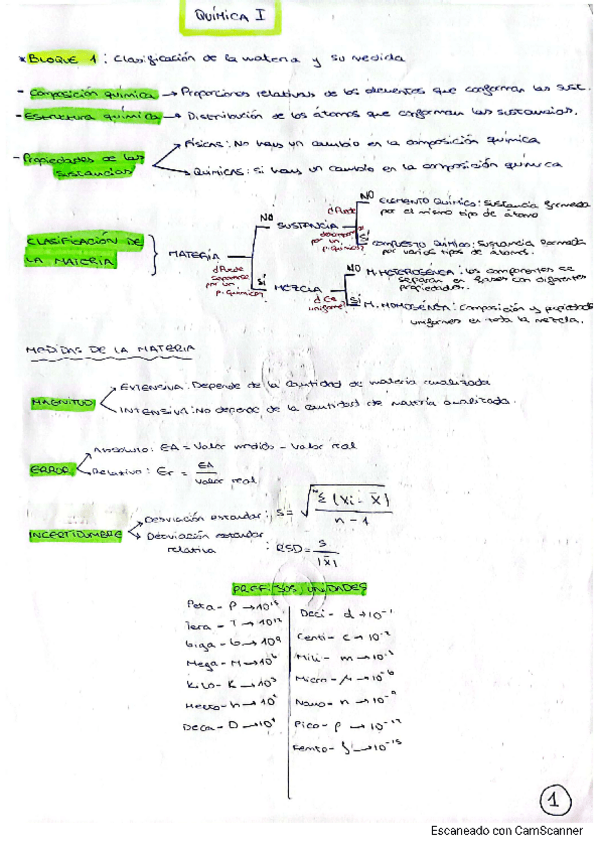 QUÍMICA I
* BLOQUE 1: Clasificación de la materia y su medida
- Composición química → Proporciones relativas de los elementos que conforman las sust.
- Estructura química → Distribución de los átomos que conforman las sustancias.
- Propiedades de las sustancias
Físicas: No hay un cambio en la composición química
Químicas: Si hay un cambio en la composición química
CLASIFICACIÓN DE LA MATERIA
MATERIA
¿Puede separarse por un p. químico?
NO
SUSTANCIA
¿Puede descomp. por un p. químico?
NO
ELEMENTO QUÍMICO: Sustancia formada
por el mismo tipo de átomo
SÍ
COMPUESTO QUÍMICO: Sustancia formada
por varios tipos de átomos.
SÍ
MEZCLA
¿Es uniforme?
NO
M. HETEROGÉNEA: los componentes se
separan en fases con diferentes
propiedades.
SÍ
M. HOMOGÉNEA: Composición y propiedades
uniformes en toda la mezcla.
MEDIDAS DE LA MATERIA
MAGNITUD
EXTENSIVA: Depende de la cantidad de materia analizada
INTENSIVA: No depende de la cantidad de materia analizada.
ERROR
Absoluto: EA = Valor medido - Valor real
Relativo: Er = EA / Valor real
INCERTIDUMBRE
Desviación estandar: S = √ Σ (Xi - X̄) / n - 1
Desviación estandar
relativa : RSD = S / |X̄|
PREFIJOS, UNIDADES
Peta - P → 10¹⁵
Tera - T → 10¹²
Giga - G → 10⁹
Mega - M → 10⁶
Kilo - K → 10³
Hecto - h → 10²
Deca - D → 10¹
Deci - d → 10⁻¹
Centi - c → 10⁻²
Mili - m → 10⁻³
Micro - μ → 10⁻⁶
Nano - n → 10⁻⁹
Pico - p → 10⁻¹²
Femto - f → 10⁻¹⁵
1
Escaneado con CamScanner